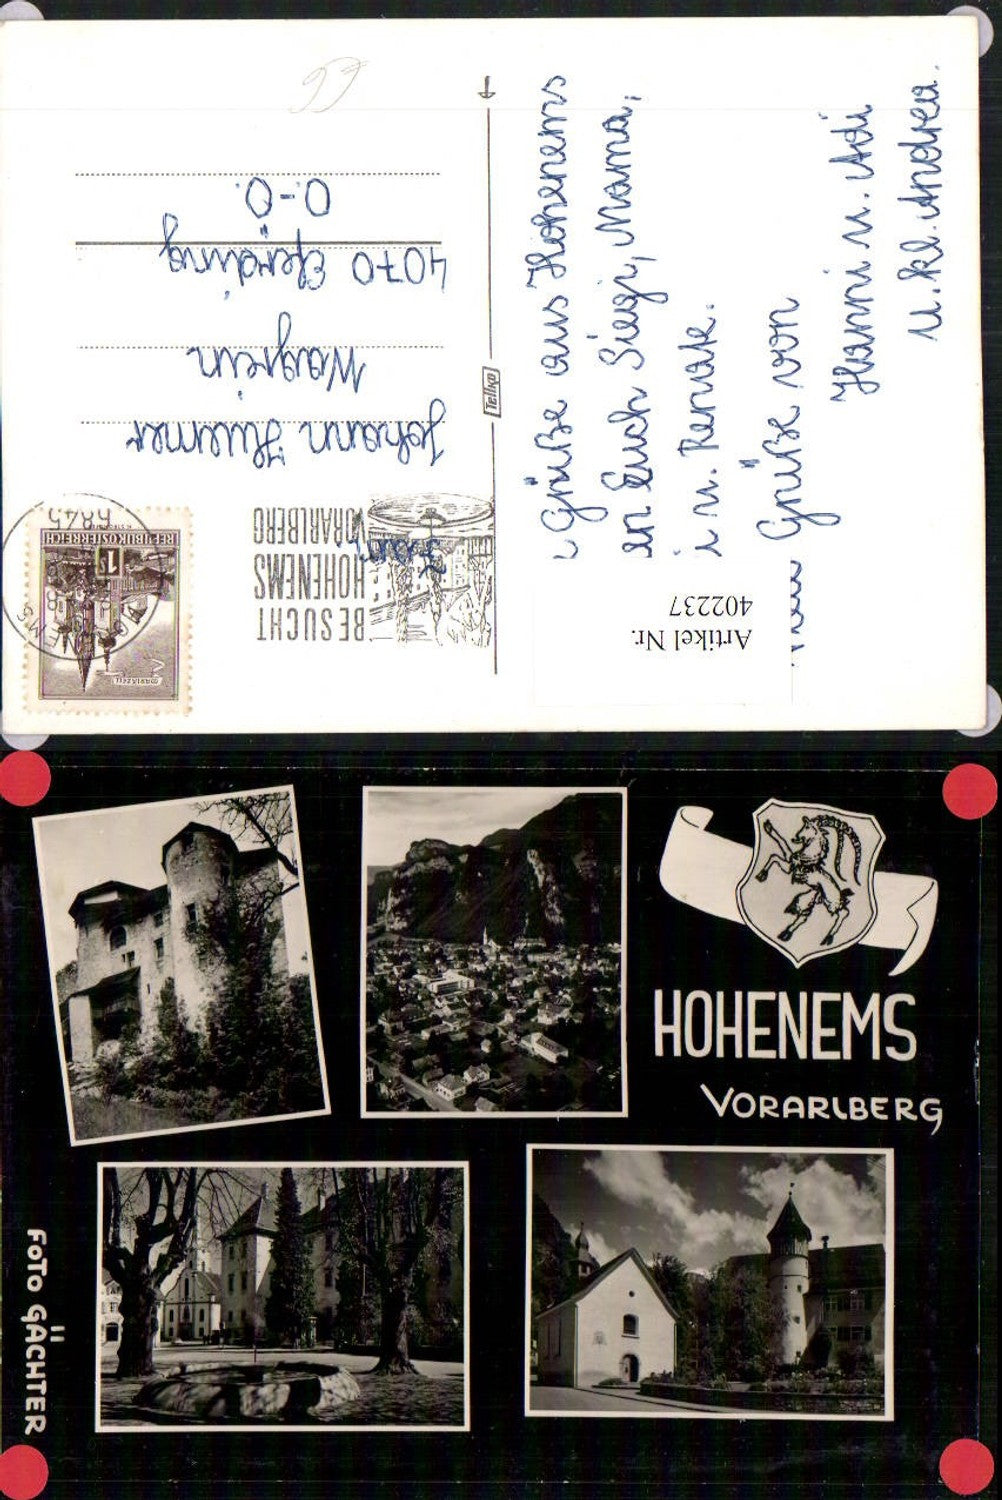 BESUCHT
HOHENEMS
VORARLBERG
6845
REPUBLIK ÖSTERREICH
1S
MARIAZELL
Johann Huemer
Wagrein
4070 Eferding
O.-Ö.
Tellko
Grüße aus Hohenems
an Euch Siegi, Mama,
u. Renate.
Grüße von
Hanni u. Adi
u. kl. Andrea.
Artikel Nr.
402237
HOHENEMS
VORARLBERG
FOTO GÄCHTER